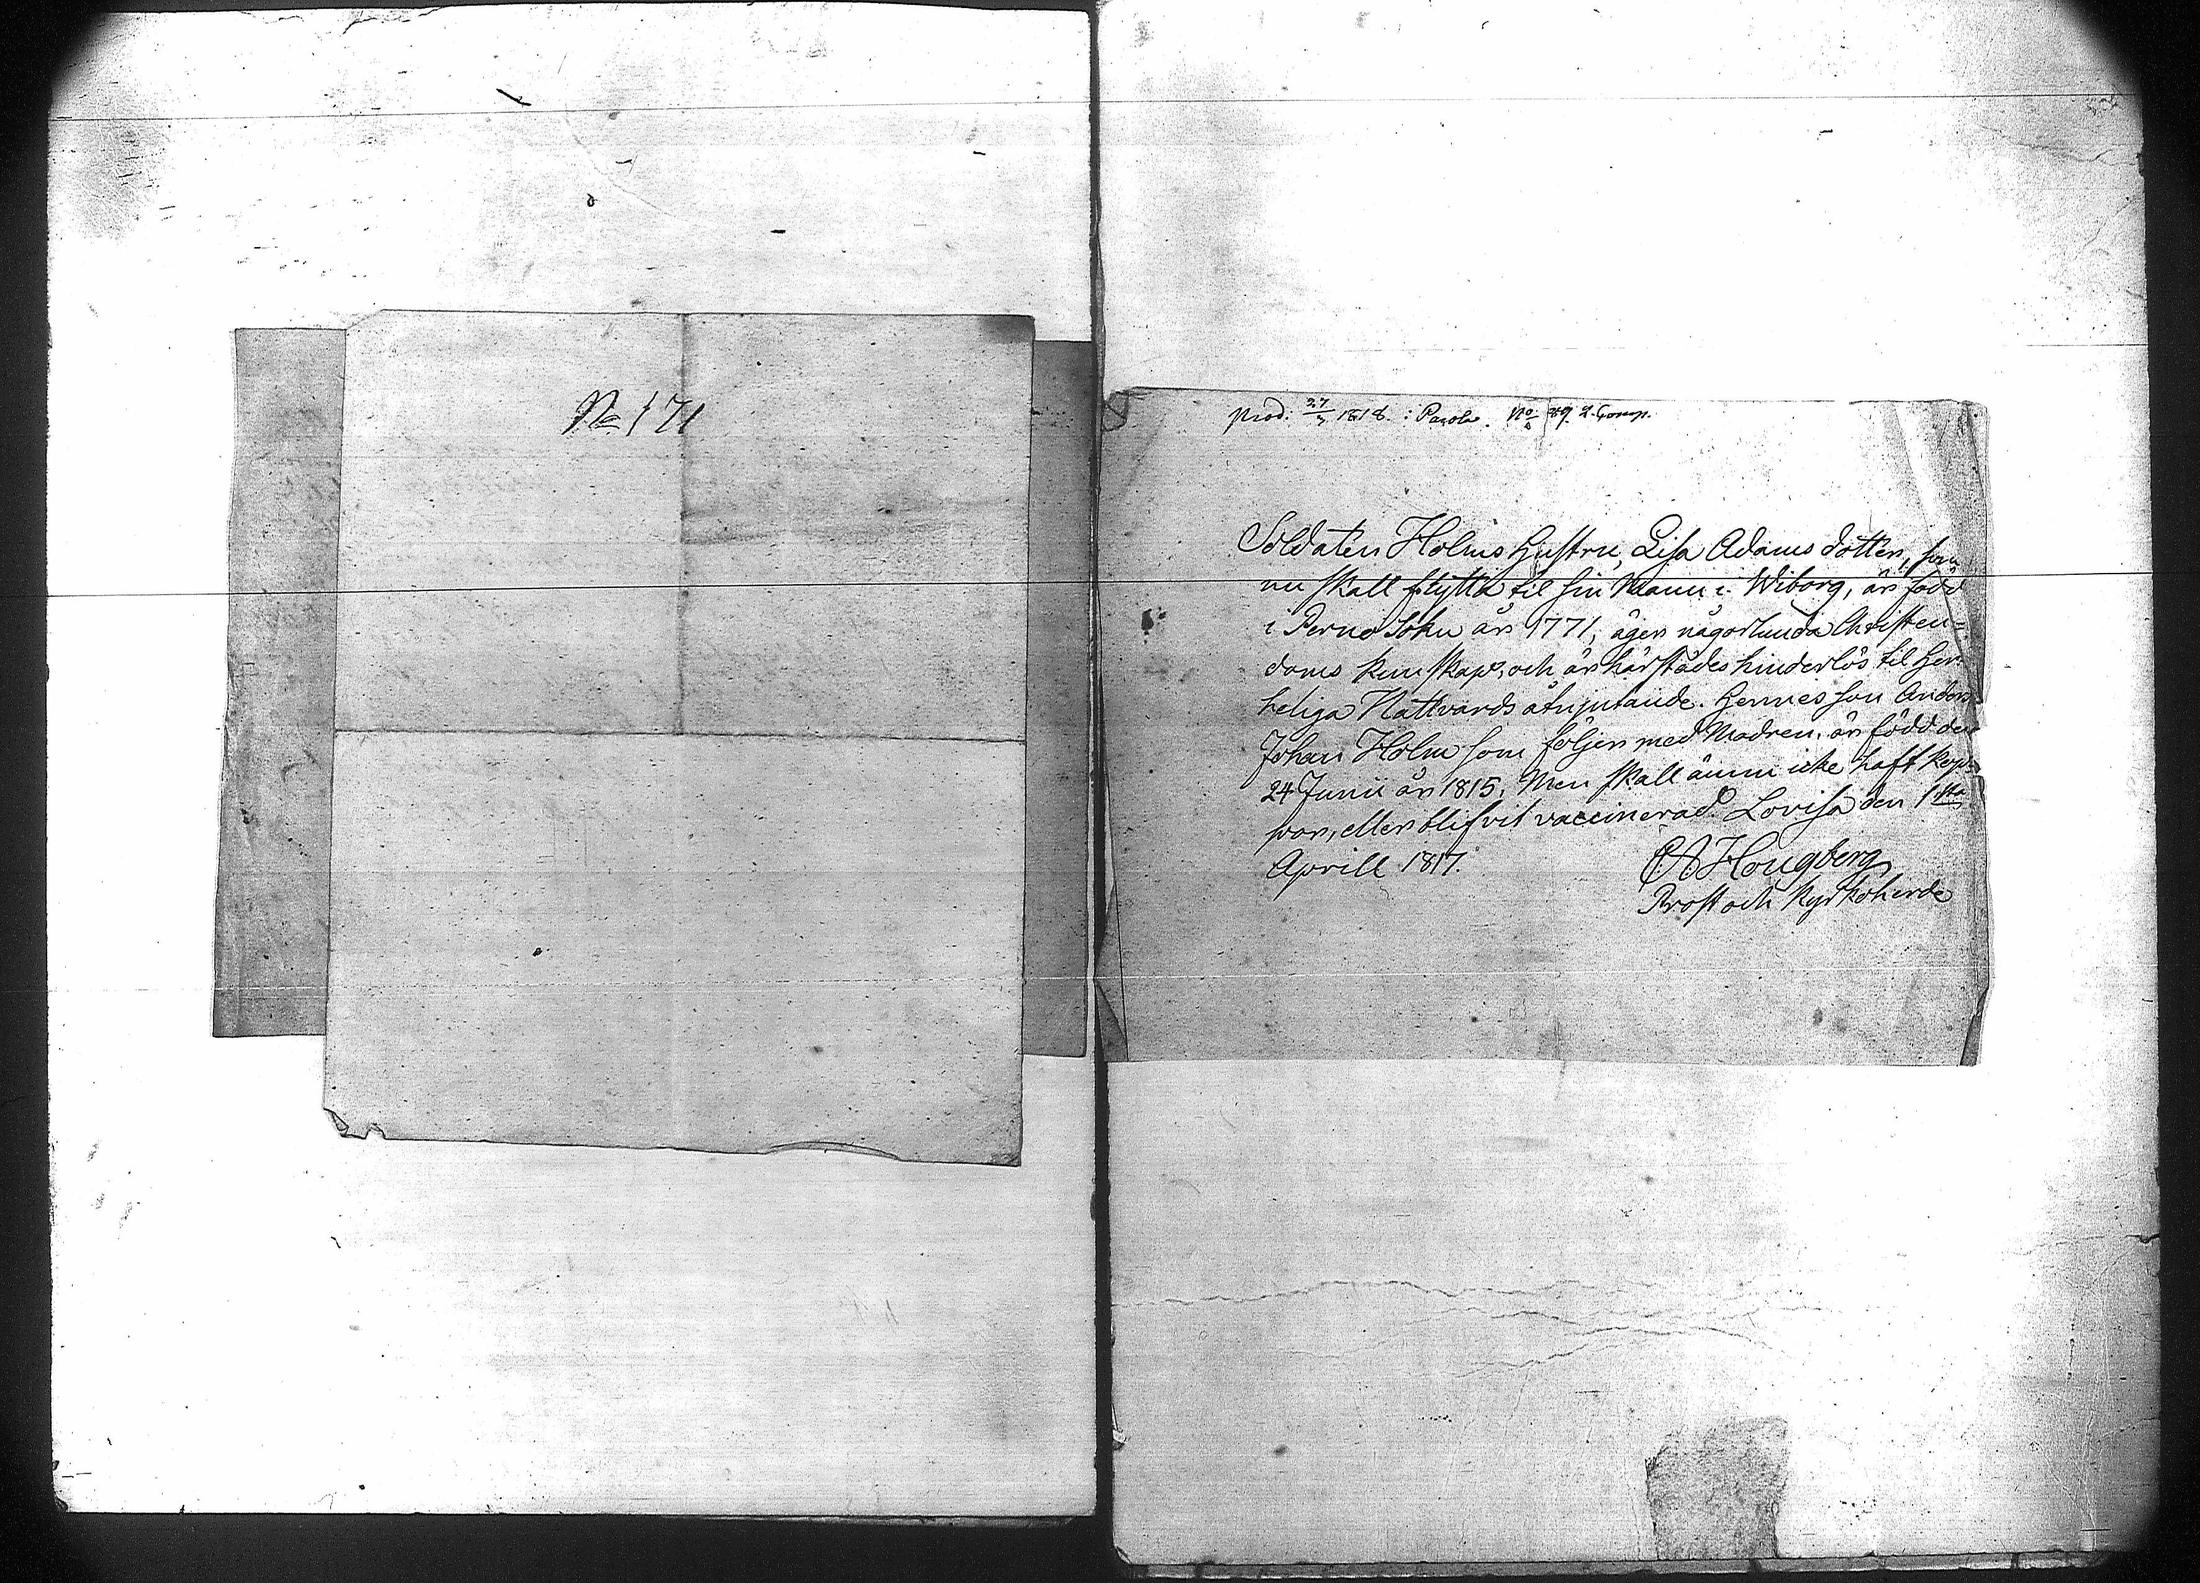 No 171
Prod: 27/3 1818. : Parola. No 89. 2. Comp.
Soldaten Holms Hustru, Lisa Adams dotter, som
nu skall flytta til sin Mann i Wiborg, är född
i Perno Sokn år 1771, äger någorlunda Christen=
doms kunskap, och är härstädes hinderlös til Her
heliga Nattvards åtnjutande. Hennes son Anders
Johan Holm som följer med Modren, är född den
24 Junii år 1815. Men skall ännu icke haft kop=
por, eller blifvit vaccinerad. Lovisa den 1sta
Aprill 1817.
Hougberg
Prost och Kyrkoherde